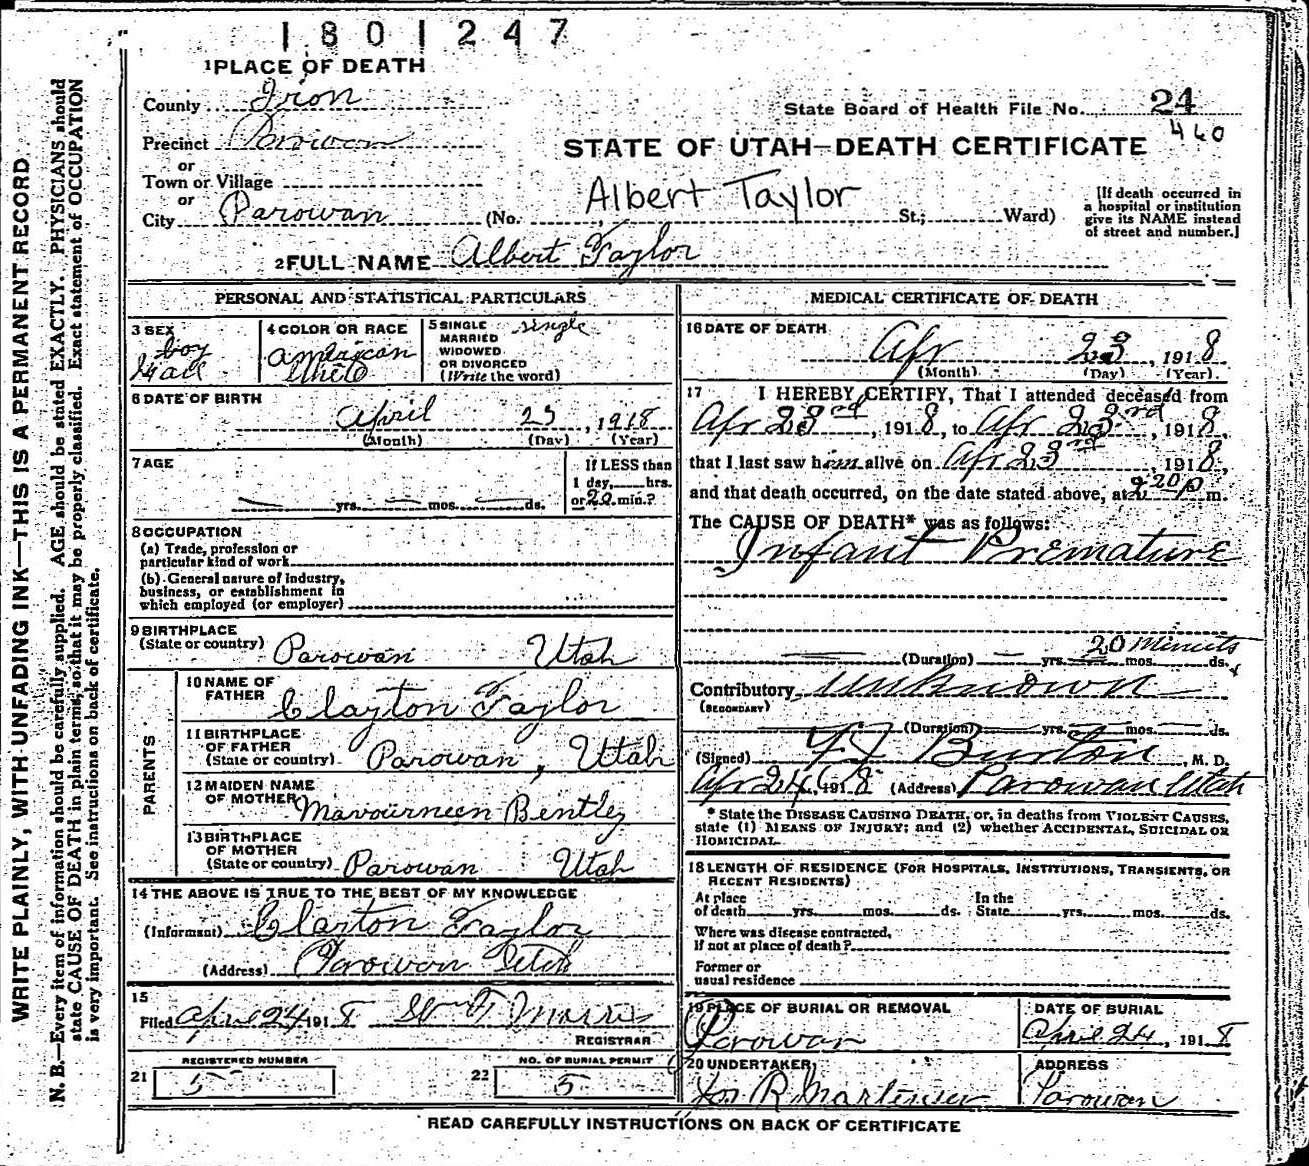 1801247
1 PLACE OF DEATH
County Iron
State Board of Health File No. 24
440
Precinct Parowan
STATE OF UTAH—DEATH CERTIFICATE
or
Town or Village
or
Albert Taylor
City Parowan (No. St.; Ward)
[If death occurred in
a hospital or institution
give its NAME instead
of street and number.]
2 FULL NAME Albert Taylor
PERSONAL AND STATISTICAL PARTICULARS
3 SEX
boy
Male
4 COLOR OR RACE
american
White
5 SINGLE single
MARRIED
WIDOWED
OR DIVORCED
(Write the word)
6 DATE OF BIRTH
April 23, 1918
(Month) (Day) (Year)
7 AGE
yrs. mos. ds.
If LESS than
1 day, hrs.
or 20 min.?
8 OCCUPATION
(a) Trade, profession or
particular kind of work
(b) General nature of industry,
business, or establishment in
which employed (or employer)
9 BIRTHPLACE
(State or country) Parowan Utah
PARENTS
10 NAME OF
FATHER Clayton Taylor
11 BIRTHPLACE
OF FATHER
(State or country) Parowan, Utah
12 MAIDEN NAME
OF MOTHER Mavourneen Bentley
13 BIRTHPLACE
OF MOTHER
(State or country) Parowan Utah
14 THE ABOVE IS TRUE TO THE BEST OF MY KNOWLEDGE
(Informant) Clayton Taylor
(Address) Parowan Utah
15
Filed April 24 1918 Wm T Morris
REGISTRAR
REGISTERED NUMBER
21 5
NO. OF BURIAL PERMIT
22 5
MEDICAL CERTIFICATE OF DEATH
16 DATE OF DEATH
Apr 23, 1918
(Month) (Day) (Year)
17 I HEREBY CERTIFY, That I attended deceased from
Apr 23rd, 1918, to Apr 23rd, 1918,
that I last saw him alive on Apr 23rd, 1918,
and that death occurred, on the date stated above, at 2 20 p m.
The CAUSE OF DEATH* was as follows:
Infant Premature
20 Minuts
(Duration) yrs. mos. ds.
Contributory unknown
(SECONDARY)
(Duration) yrs. mos. ds.
(Signed) Burton, M. D.
Apr 24, 1918 (Address) Parowan Utah
* State the DISEASE CAUSING DEATH, or, in deaths from VIOLENT CAUSES,
state (1) MEANS OF INJURY; and (2) whether ACCIDENTAL, SUICIDAL OR
HOMICIDAL.
18 LENGTH OF RESIDENCE (FOR HOSPITALS, INSTITUTIONS, TRANSIENTS, OR
RECENT RESIDENTS)
At place In the
of death yrs. mos. ds. State yrs. mos. ds.
Where was disease contracted,
if not at place of death?
Former or
usual residence
19 PLACE OF BURIAL OR REMOVAL
Parowan
DATE OF BURIAL
April 24, 1918
20 UNDERTAKER
R Martensen
ADDRESS
Parowan
READ CAREFULLY INSTRUCTIONS ON BACK OF CERTIFICATE
WRITE PLAINLY, WITH UNFADING INK—THIS IS A PERMANENT RECORD
N. B.—Every item of information should be carefully supplied. AGE should be stated EXACTLY. PHYSICIANS should
state CAUSE OF DEATH in plain terms, so that it may be properly classified. Exact statement of OCCUPATION
is very important. See instructions on back of certificate.